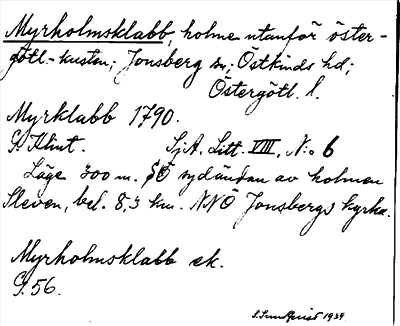 Myrholmsklabb, holme utanför öster-
götl.-kusten; Jonsberg sn; Östkinds hd;
Östergötl. l.
Myrklabb 1790.
G. Klint. SjA. Litt. VIII, N:o 6
Läge 300 m. SÖ sydändan av holmen
Sleven, bel. 8,3 km. NNÖ Jonsbergs kyrka.
Myrholmsklabb ek.
G. 56.
S. Sundquist 1939